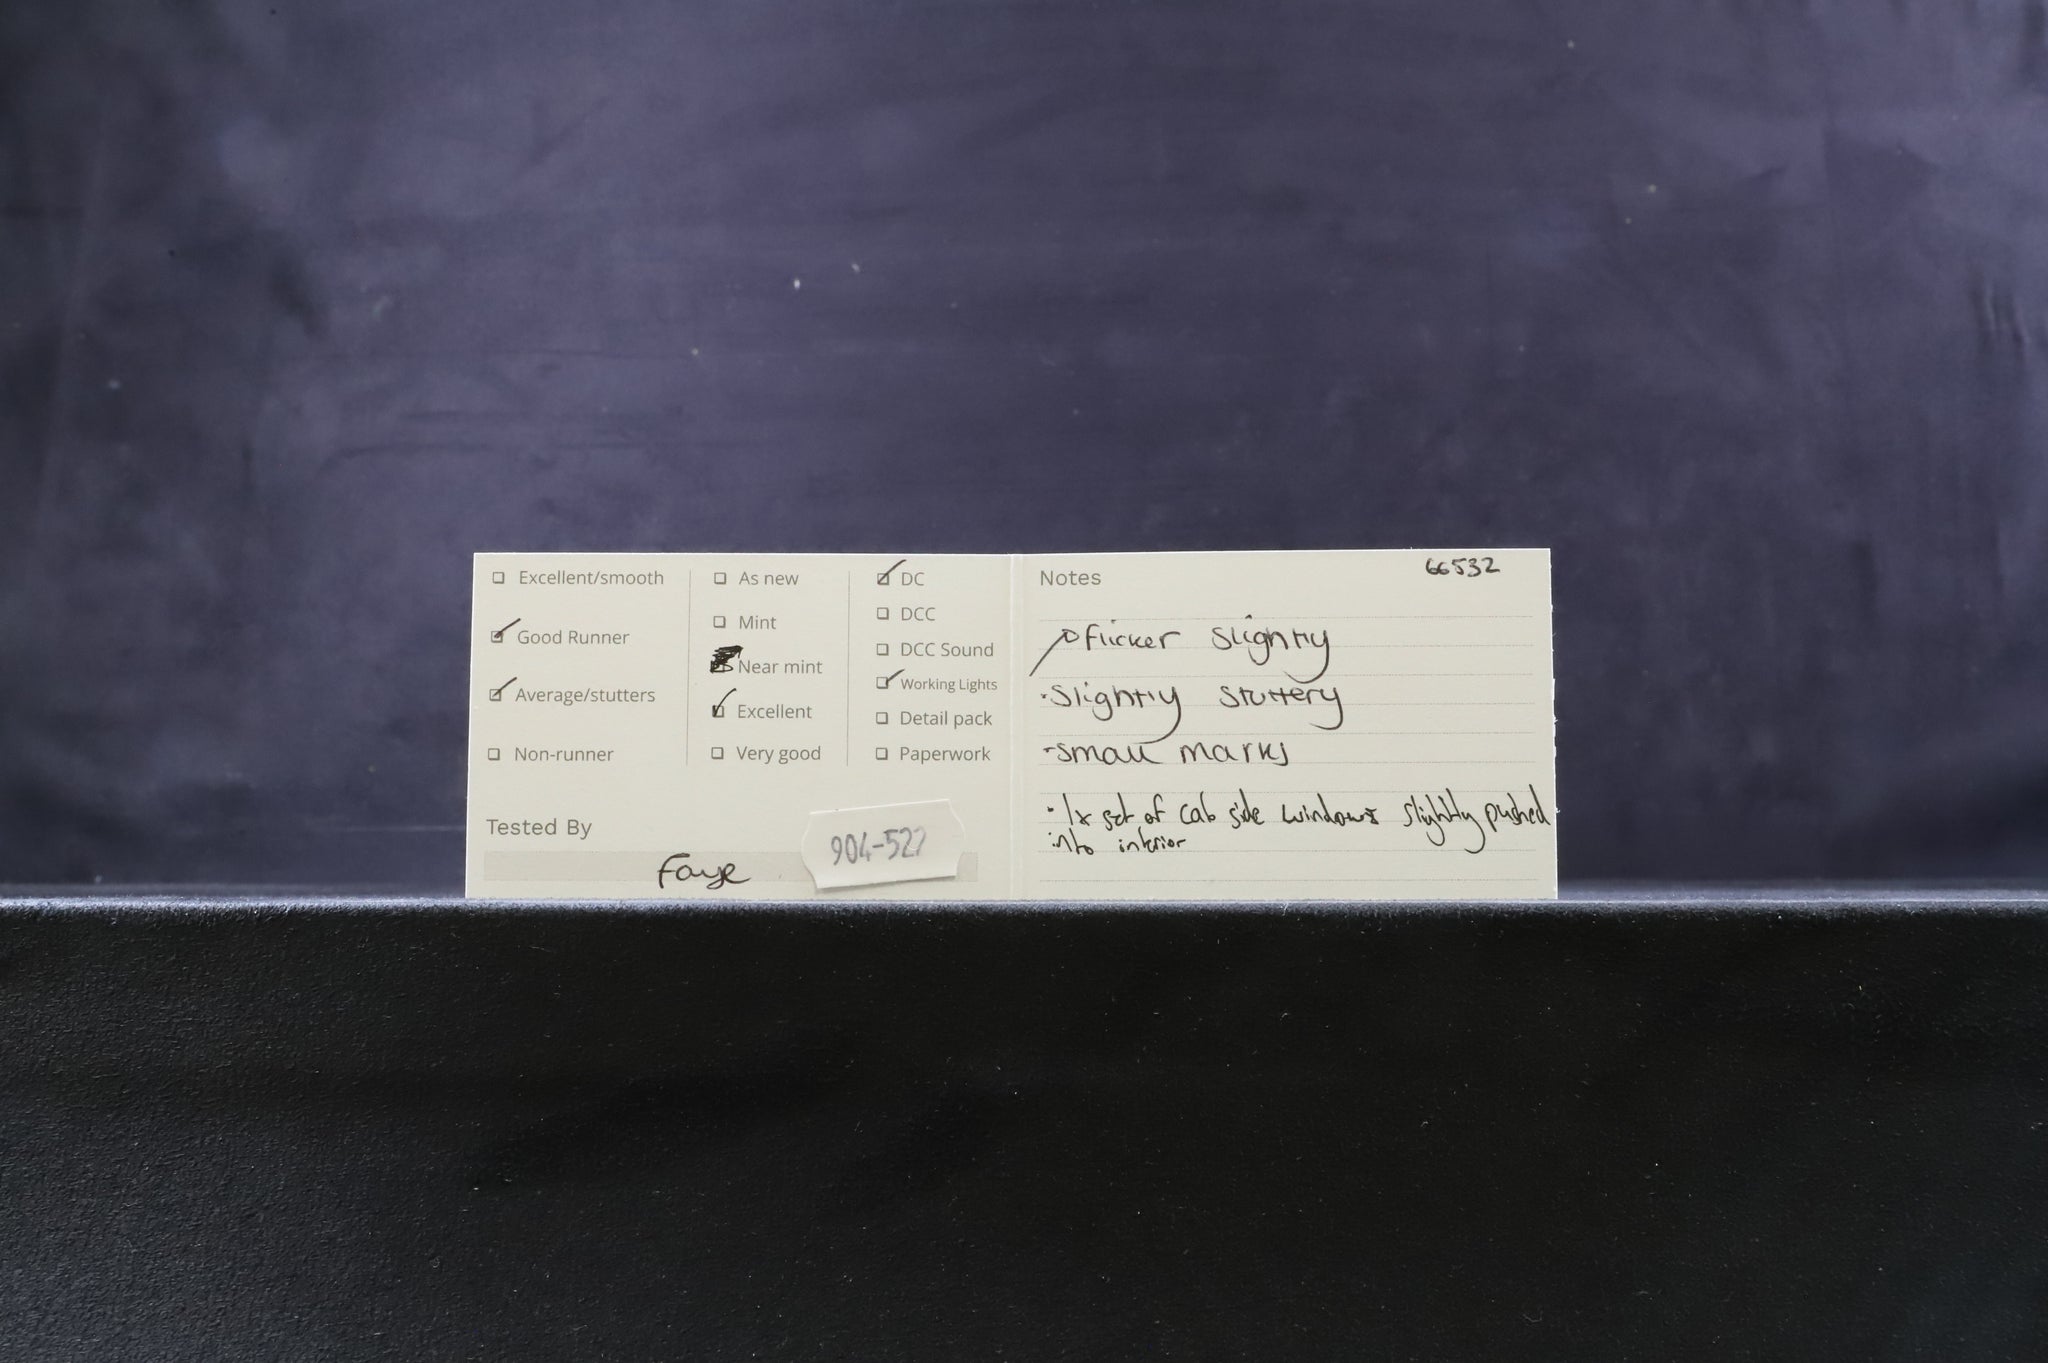 Excellent/smooth
Good Runner
Average/stutters
Non-runner
As new
Mint
Near mint
Excellent
Very good
DC
DCC
DCC Sound
Working Lights
Detail pack
Paperwork
Tested By
Faye
904-522
Notes
66532
flicker slightly
·Slightly stuttery
-small marks
·1x set of cab side windows slightly pushed
into interior